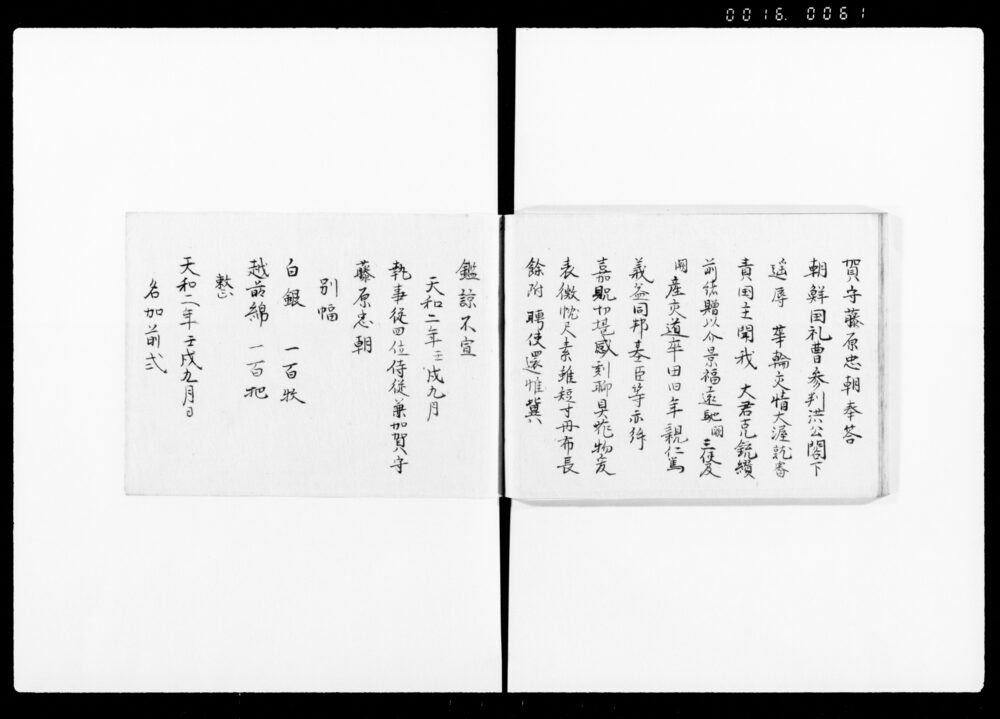 0016. 0061
賀守藤原忠朝奉答
朝鮮国礼曹参判洪公閤下
遥辱 華輪交情大渥就審
貴国主聞我 大君克銃纘
前緒贈以介景福遠馳 三使及
産交道率由旧年親仁篤
義益同邦基臣等亦絆
嘉貺切堪感刻聊具菲物爰
表微忱尺素雖短寸丹布長
餘附 聘使還惟冀
鑑諒不宣
天和二年壬戌九月
執事従四位侍従兼加賀守
藤原忠朝
別幅
白銀 一百枚
越前綿 一百把
整
天和二年壬戌九月日
名加前式